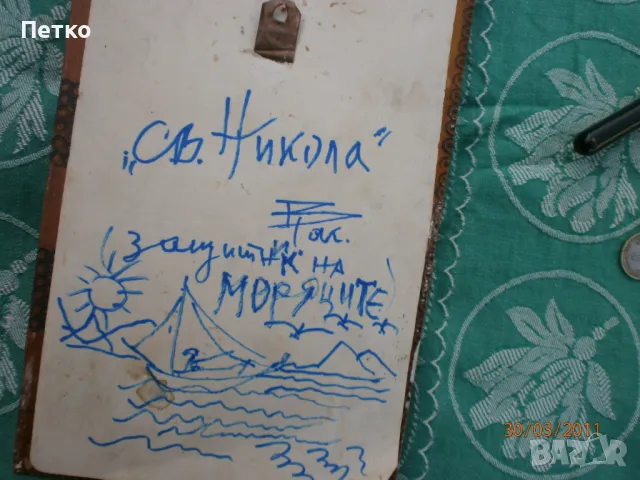 Петко
„СВ. Никола”
Защитник на
МОРЯЦИТЕ
30/03/2011
BAZAR